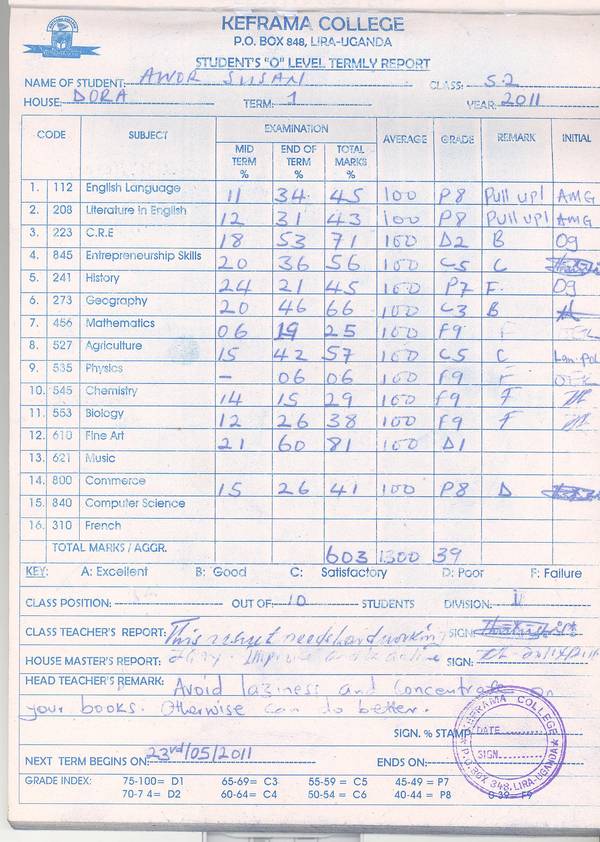 KEFRAMA COLLEGE
P.O. BOX 848, LIRA-UGANDA
STUDENT'S "O" LEVEL TERMLY REPORT
NAME OF STUDENT: AWOR SUSAN CLASS: S2
HOUSE: DORA TERM: 1 YEAR: 2011
CODE SUBJECT EXAMINATION AVERAGE GRADE REMARK INITIAL
MID TERM % END OF TERM % TOTAL MARKS %
1. 112 English Language 11 34 45 100 P8 Pull up! AMG
2. 208 Literature in English 12 31 43 100 P8 Pull up! AMG
3. 223 C.R.E 18 53 71 100 D2 B Og
4. 845 Entrepreneurship Skills 20 36 56 100 C5 C
5. 241 History 24 21 45 100 P7 F Og
6. 273 Geography 20 46 66 100 C3 B
7. 456 Mathematics 06 19 25 100 F9 F
8. 527 Agriculture 15 42 57 100 C5 C
9. 535 Physics - 06 06 100 F9 F
10. 545 Chemistry 14 15 29 100 F9 F
11. 553 Biology 12 26 38 100 F9 F
12. 610 Fine Art 21 60 81 100 D1
13. 621 Music
14. 800 Commerce 15 26 41 100 P8 D
15. 840 Computer Science
16. 310 French
TOTAL MARKS / AGGR. 603 1300 39
KEY: A: Excellent B: Good C: Satisfactory D: Poor F: Failure
CLASS POSITION: OUT OF: 10 STUDENTS DIVISION: II
CLASS TEACHER'S REPORT: This result needs hard working SIGN:
HOUSE MASTER'S REPORT: Improve SIGN:
HEAD TEACHER'S REMARK: Avoid laziness and concentrate on
your books. Otherwise can do better.
SIGN. % STAMP
KEFRAMA COLLEGE
DATE
SIGN.
P.O. BOX 848, LIRA-UGANDA
NEXT TERM BEGINS ON: 23rd/05/2011 ENDS ON:
GRADE INDEX: 75-100= D1 65-69= C3 55-59 = C5 45-49 = P7
70-7 4= D2 60-64= C4 50-54 = C6 40-44 = P8 0-39= F9